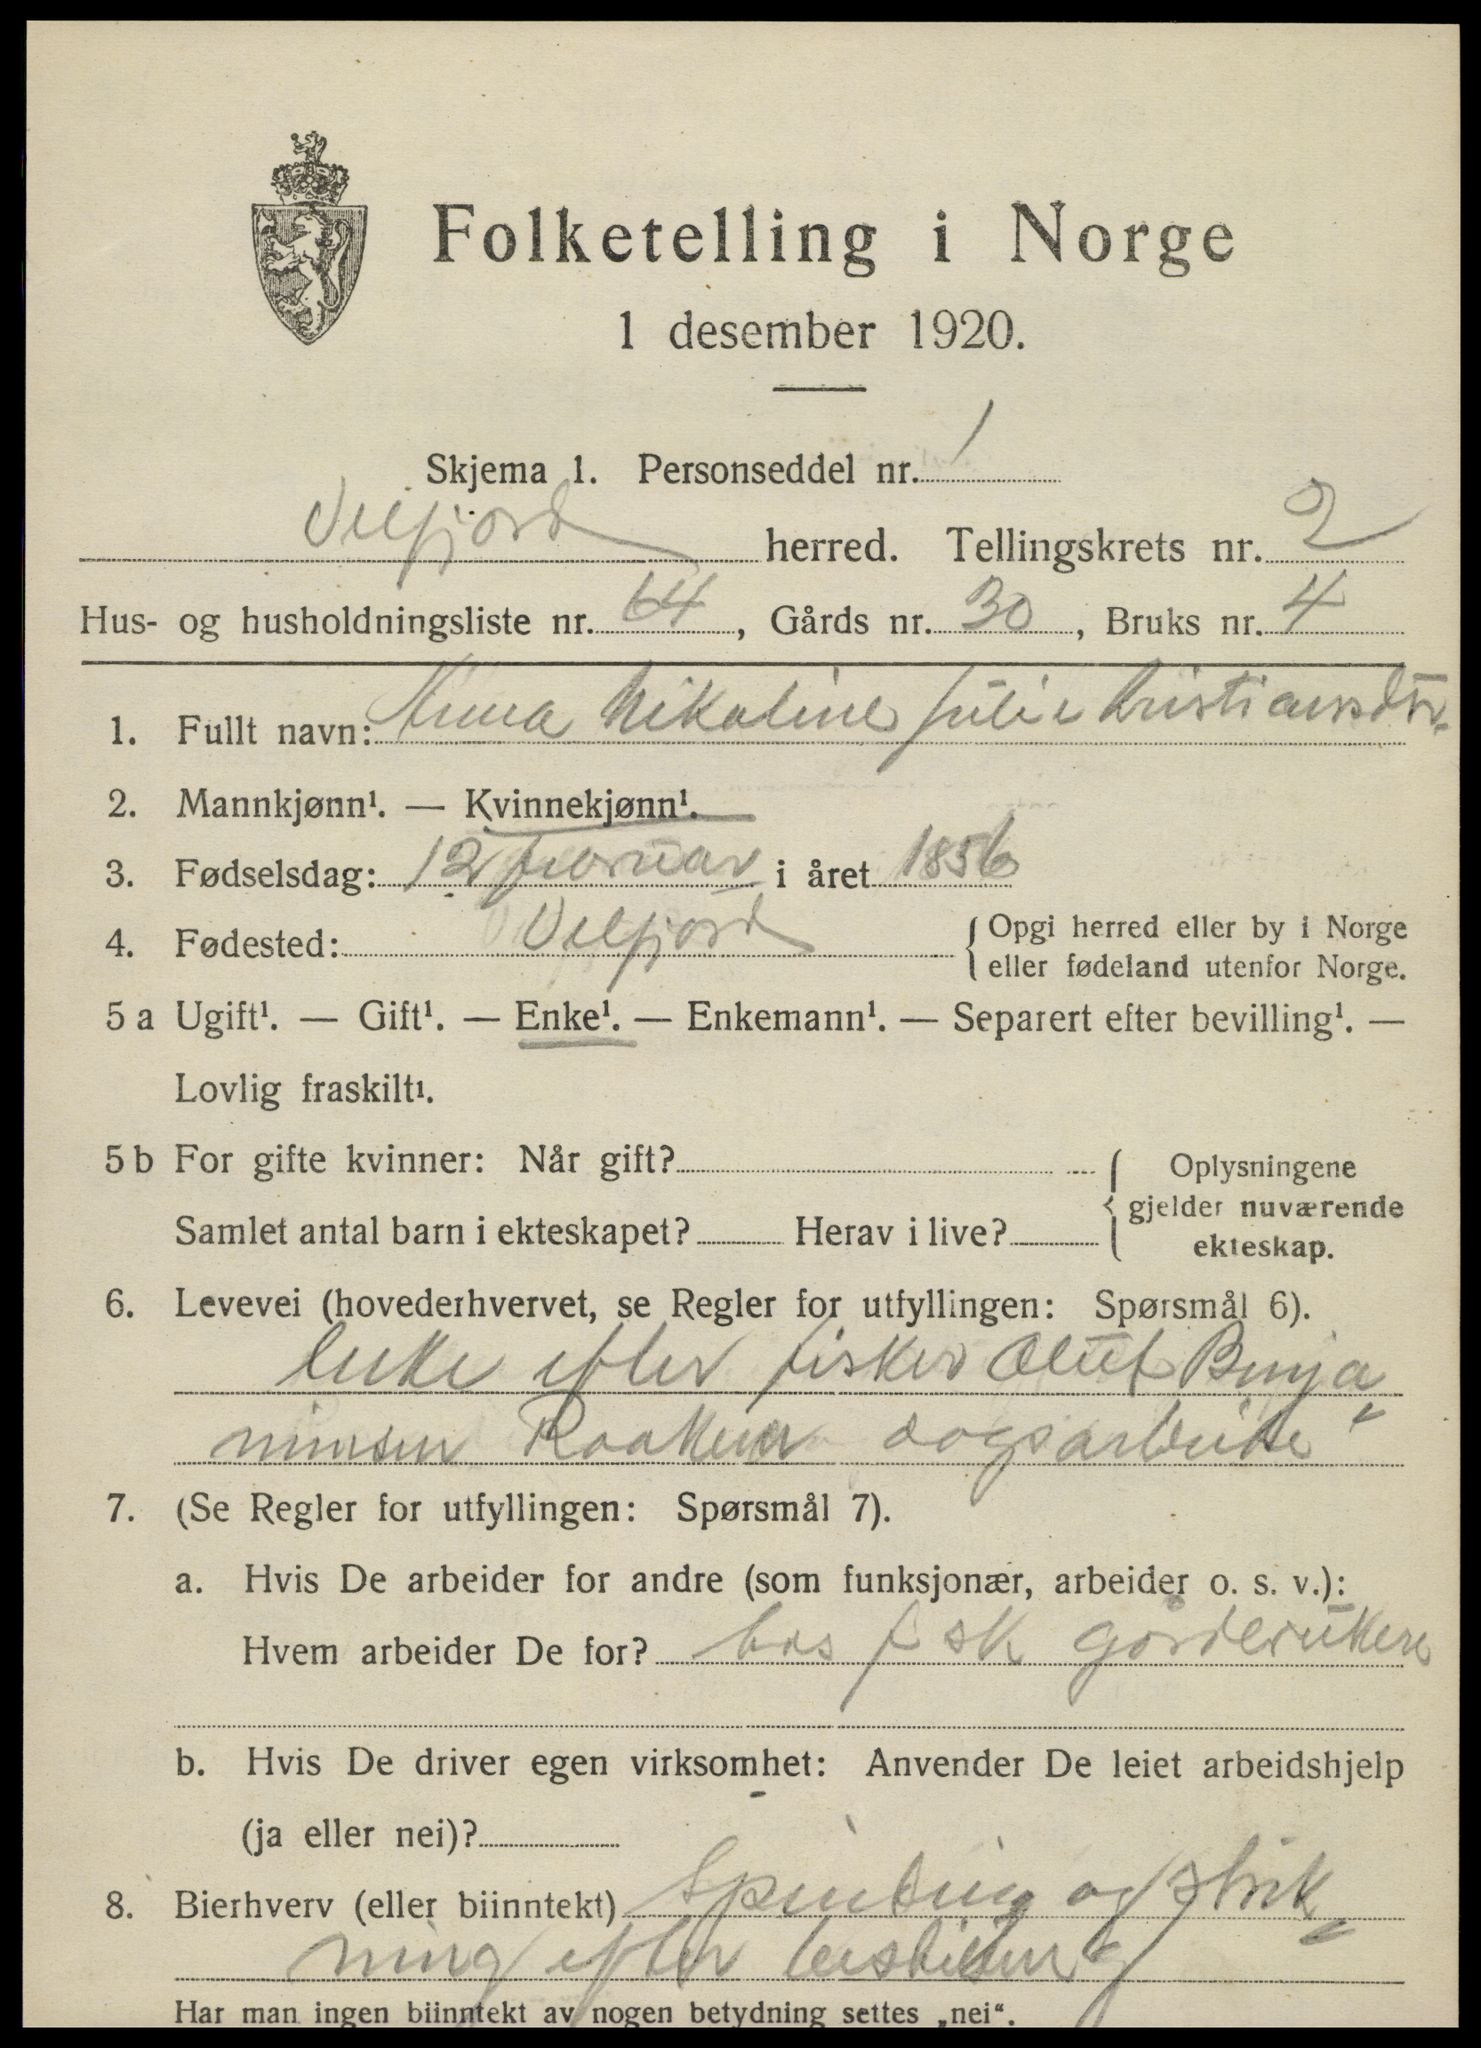 Folketelling i Norge
1 desember 1920.
Skjema 1. Personseddel nr. 1
Velfjord herred. Tellingskrets nr. 2
Hus- og husholdningsliste nr. 64, Gårds nr. 30, Bruks nr. 4
1. Fullt navn: Anna Nikoline Julie Kristiansdtr.
2. Mannkjønn¹. — Kvinnekjønn¹.
3. Fødselsdag: 12 februar i året 1856
4. Fødested: Velfjord { Opgi herred eller by i Norge
eller fødeland utenfor Norge.
5 a Ugift¹. — Gift¹. — Enke¹. — Enkemann¹. — Separert efter bevilling¹. —
Lovlig fraskilt¹.
5 b For gifte kvinner: Når gift? { Oplysningene
gjelder nuværende
ekteskap.
Samlet antal barn i ekteskapet? Herav i live?
6. Levevei (hovederhvervet, se Regler for utfyllingen: Spørsmål 6).
enke efter fisker Oluf Benja
minsen dagsarbeide
7. (Se Regler for utfyllingen: Spørsmål 7).
a. Hvis De arbeider for andre (som funksjonær, arbeider o. s. v.):
Hvem arbeider De for? hos f sk gårdbrukere
b. Hvis De driver egen virksomhet: Anvender De leiet arbeidshjelp
(ja eller nei)?
8. Bierhverv (eller biinntekt) Spinding og strik
ning efter bestilling
Har man ingen biinntekt av nogen betydning settes „nei“.